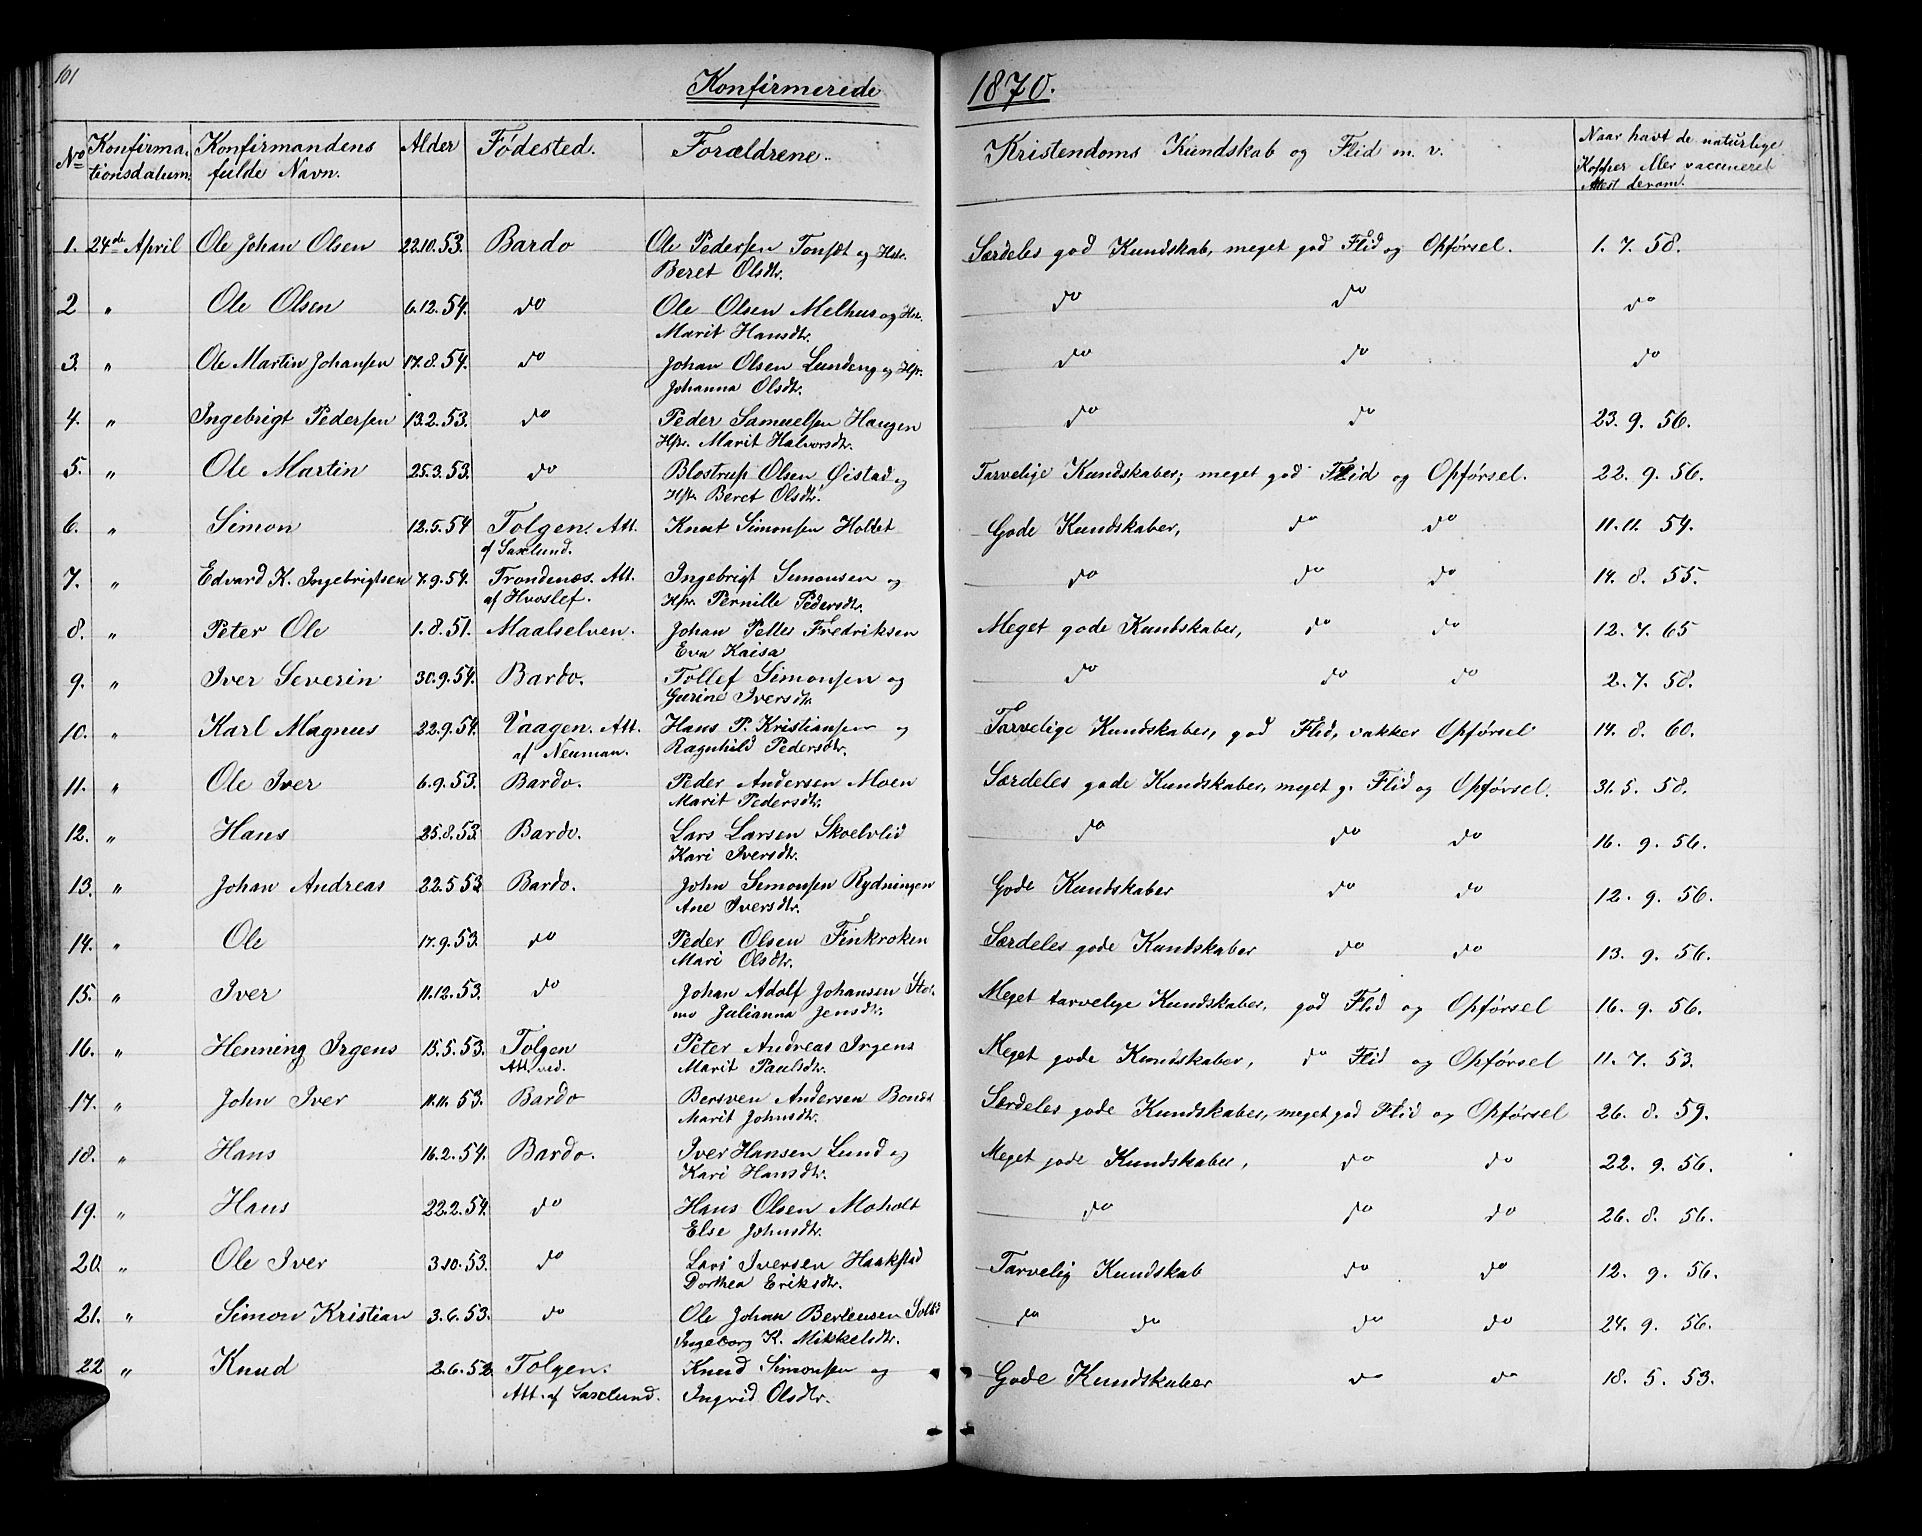 101
Konfirmerede 1870.
No Konfirmationsdatum. Konfirmandens fulde Navn. Alder Fødested. Forældrene. Kristendoms Kundskab og Flid m. v. Naar havt de naturlige Kopper eller vaccineret Attest derom.
1. 24de April Ole Johan Olsen 22.10.53. Bardo Ole Pedersen Tonset og Hstr. Særdeles god Kundskab, meget god Flid og Opførsel. 1. 7. 58.
Beret Olsdtr.
2 " Ole Olsen 6.12.54. do Ole Olsen Melhus og Hstr. do do do
Marit Hansdtr.
3. " Ole Martin Johansen 17.8.54. do Johan Olsen Lundeng og Hstr. do do do
Johanna Olsdtr.
4. " Ingebrigt Pedersen 13.2.53. do Peder Samuelsen Haugen do do 23. 9. 56.
Hstr. Marit Halvorsdtr.
5. " Ole Martin 25.3.53. do Blostrup Olsen Øistad og Tarvelige Kundskaber, meget god Flid og Opførsel. 22. 9. 56.
Hstr. Beret Olsdtr.
6. " Simon 12.5.54 Tolgen. Att. Knut Simonsen Holtet Gode Kundskaber, do do 11. 11. 54.
af Saxlund.
7. " Edvard K. Ingebrigtsen 7.9.54. Trondenæs. Att. Ingebrigt Simonsen og do do do 14. 8. 55.
af Hvoslef. Hstr. Pernille Pedersdtr.
8. " Peter Ole 1.8.51. Maalselven. Johan Pelles Fredriksen Meget gode Kundskaber, do do 12. 7. 65
Eva Kaisa
9. " Iver Severin 30.9.54. Bardo. Tollef Simonsen og do do do 2. 7. 58.
Gurine Iversdtr.
10. " Karl Magnus 22.9.54. Vaagen. Att. Hans P. Kristiansen og Tarvelige Kundskaber, god Flid, vakker Opførsel 14. 8. 60.
af Neuman. Ragnhild Pedersdtr.
11. " Ole Iver 6.9.53. Bardo. Peder Andersen Moen Særdeles gode Kundskaber, meget g. Flid og Opførsel. 31. 5. 58.
Marit Pedersdtr.
12. " Hans 25.8.53. Bardo. Lars Larsen Skoelvlid do do do 16. 9. 56.
Kari Iversdtr.
13. " Johan Andreas 22.5.53 Bardo. John Simonsen Rydningen Gode Kundskaber do do 12. 9. 56.
Ane Iversdtr.
14. " Ole 17.9.53. do Peder Olsen Finkroken Særdeles gode Kundskaber do do 13. 9. 56.
Mari Olsdtr.
15. " Iver 11.12.53. do Johan Adolf Johansen Sto- Meget tarvelige Kundskaber, god Flid og Opførsel 16. 9. 56.
mo Julianna Jensdtr.
16. " Henning Irgens 15.5.53. Tolgen Peter Andreas Irgens Meget gode Kundskaber, do Flid og Opførsel 11. 7. 53.
Att. ved. Marit Paulsdtr.
17. " John Iver 11.11.53. Bardo Bersven Andersen Særdeles gode Kundskaber, meget god Flid og Opførsel 26. 8. 59.
Marit Johnsdtr.
18. " Hans 16.2.54. Bardo. Iver Hansen Lund og Meget gode Kundskaber, do do 22. 9. 56.
Kari Hansdtr.
19. " Hans 22.2.54. do Hans Olsen Moholt do do do 26. 8. 56.
Else Johnsdtr.
20. " Ole Iver 3.10.53. do Lars Iversen Haakstad Tarvelig Kundskab do do 12. 9. 56.
Dorthea Eriksdtr.
21. " Simon Kristian 3.6.53. do Ole Johan Berteusen do do do do 24. 9. 56.
Ingeborg K. Mikkelsdtr.
22 " Knud 2.6.52 Tolgen. Knud Simonsen og Gode Kundskaber do do 18. 5. 53.
Att. af Saxlund. Ingrid Olsdtr.